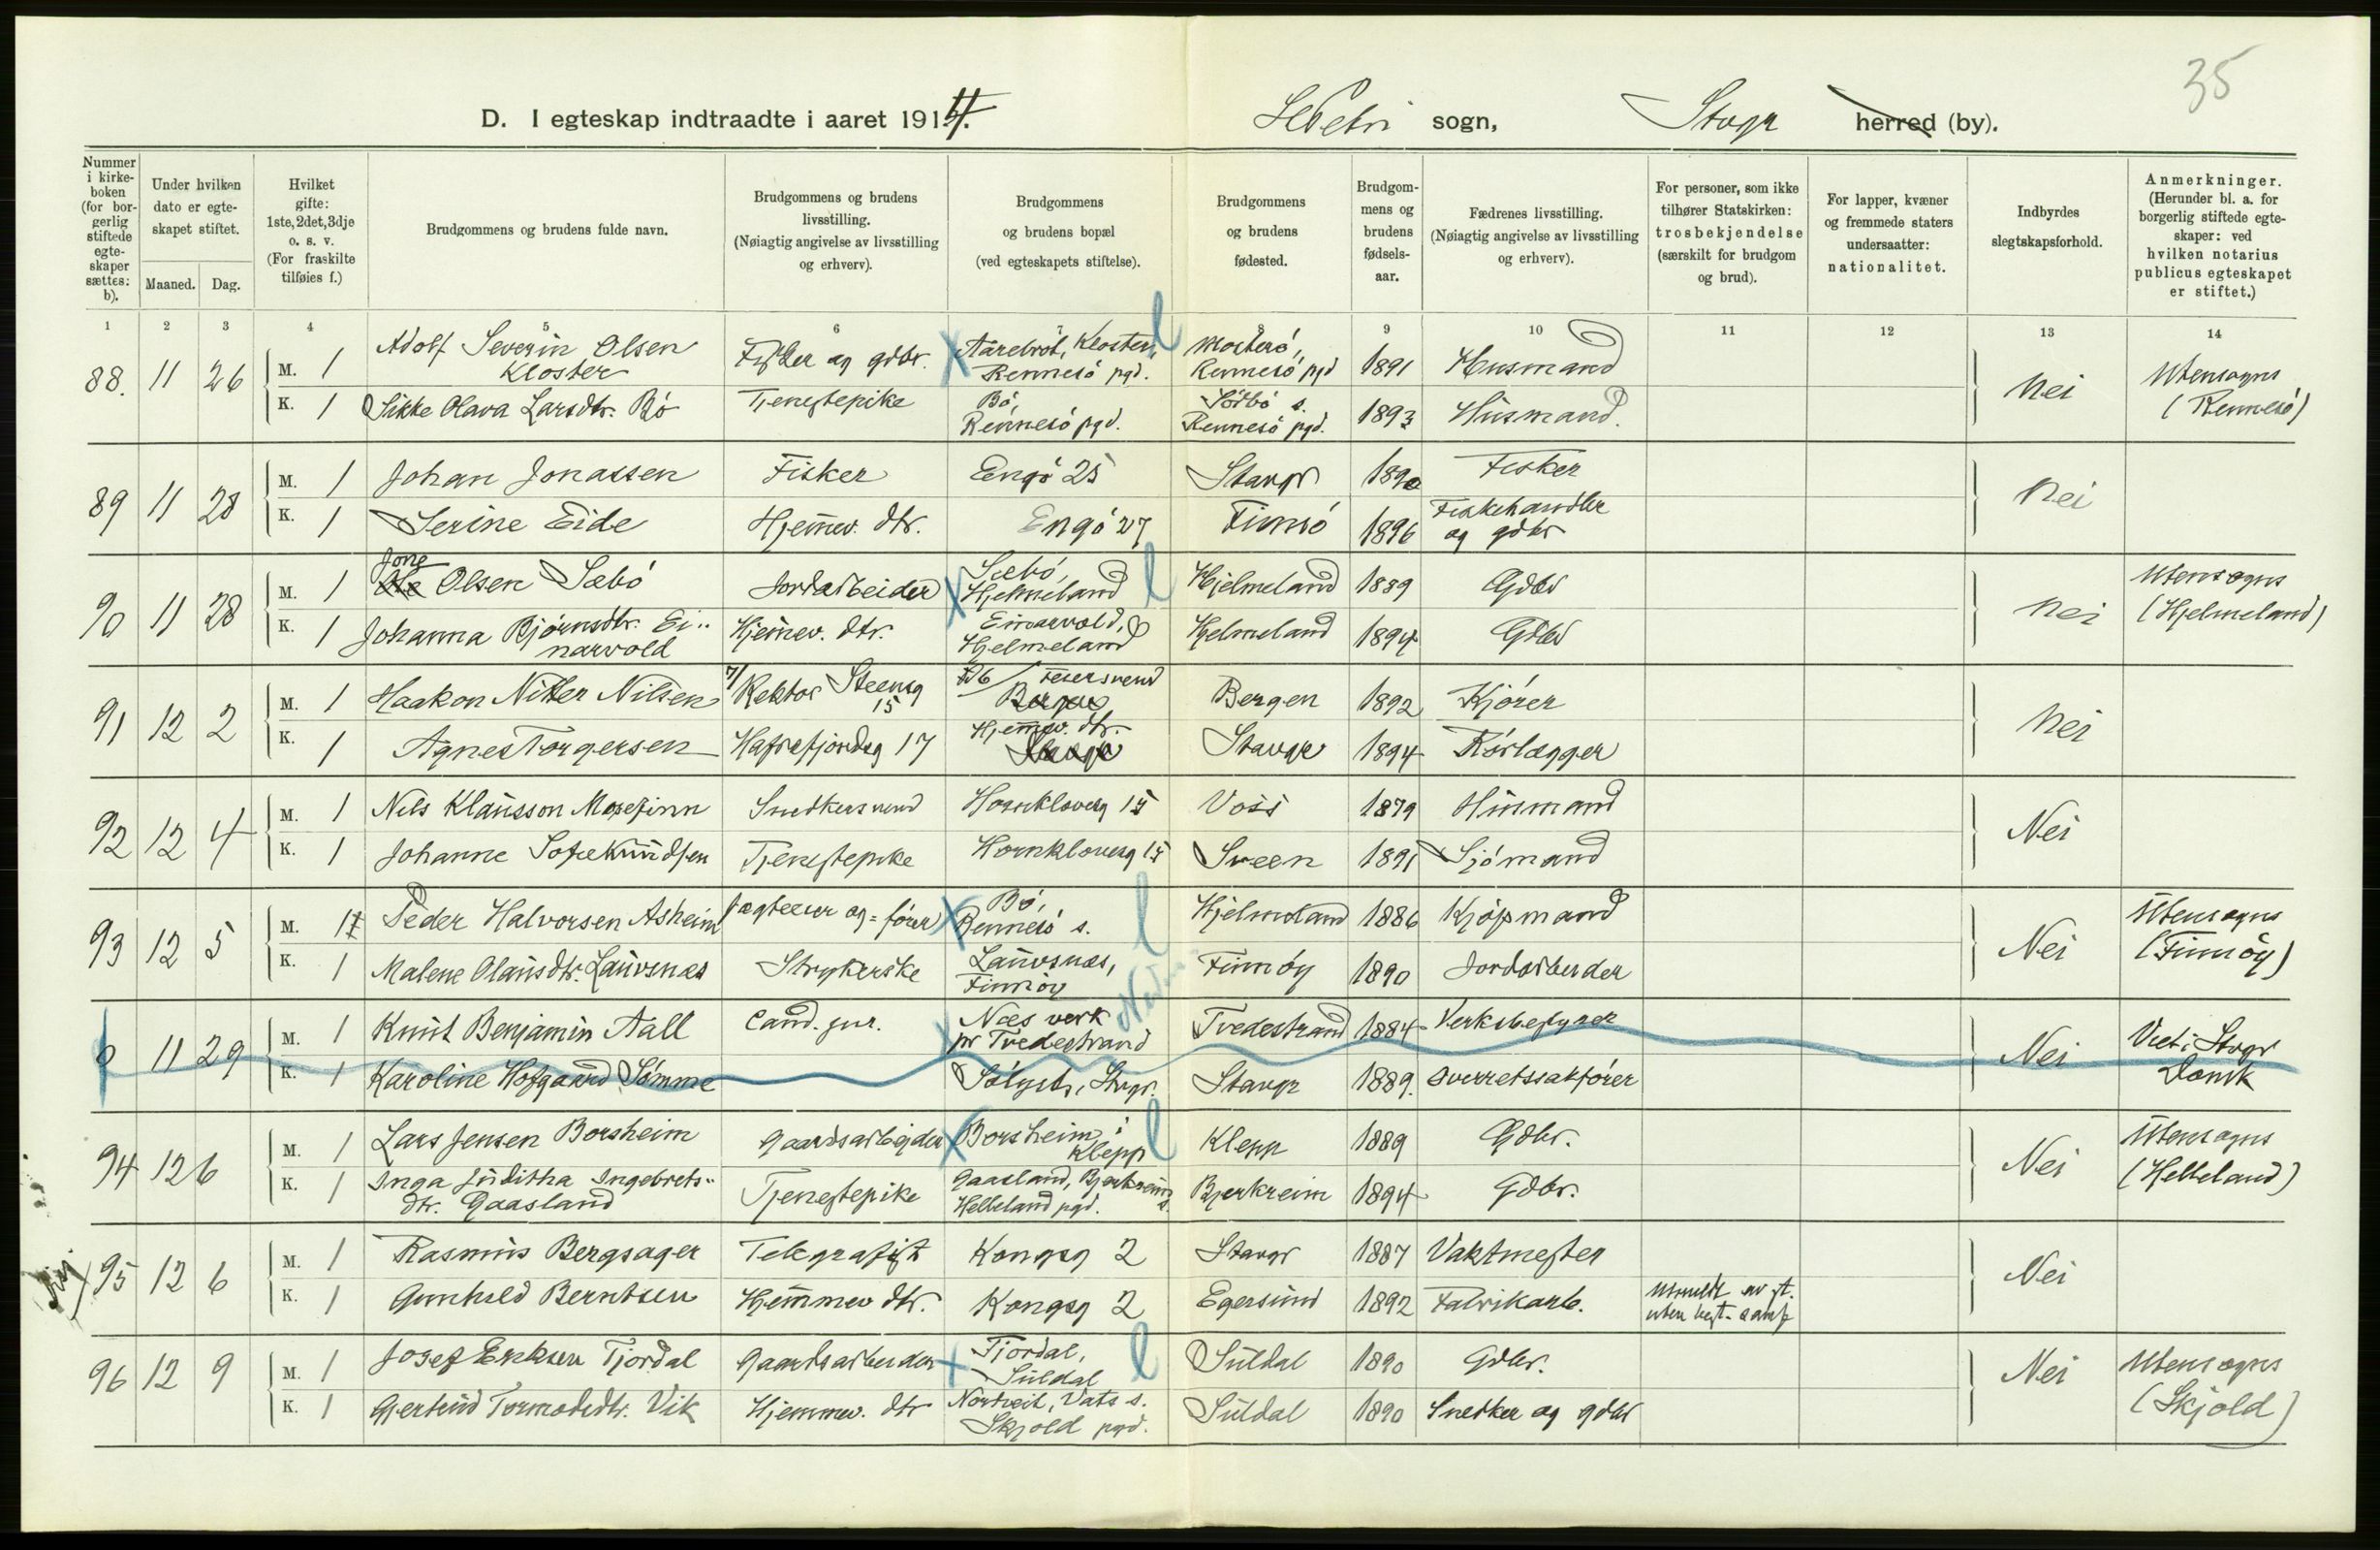 35
D. I egteskap indtraadte i aaret 1914. St. Petri sogn, Stvgr herred (by).
Nummer i kirke-boken (for bor-gerlig stiftede egte-skaper sættes: b).
Under hvilken dato er egte-skapet stiftet.
Maaned. Dag.
Hvilket gifte: 1ste, 2det, 3dje o. s. v. (For fraskilte tilføies f.)
Brudgommens og brudens fulde navn.
Brudgommens og brudens livsstilling. (Nøiagtig angivelse av livsstilling og erhverv).
Brudgommens og brudens bopæl (ved egteskapets stiftelse).
Brudgommens og brudens fødested.
Brudgom-mens og brudens fødsels-aar.
Fædrenes livsstilling. (Nøiagtig angivelse av livsstilling og erhverv).
For personer, som ikke tilhører Statskirken: trosbekjendelse (særskilt for brudgom og brud).
For lapper, kvæner og fremmede staters undersaatter: nationalitet.
Indbyrdes slegtskapsforhold.
Anmerkninger. (Herunder bl. a. for borgerlig stiftede egte-skaper: ved hvilken notarius publicus egteskapet er stiftet.)
1 2 3 4 5 6 7 8 9 10 11 12 13 14
88. 11 26 M. 1 Adolf Severin Olsen Kloster Fisker og gdbr. Aarebrot, Kloster, Rennesö pgd. Mosterö, Rennesö pgd 1891 Husmand Nei Utensogns (Rennesö)
K. 1 Sikke Olava Larsdtr. Bö Tjenestepike Bö, Rennesö pgd. Sörbö s. Rennesö pgd. 1893 Husmand.
89 11 28 M. 1 Johan Jonassen Fisker Engö 25 Stavgr 1890 Fisker Nei
K. 1 Serine Eide Hjemmev. dtr. Engö 27 Finnö 1896 Fiskehandler og gdbr
90 11 28 M. 1 Jone Ole Olsen Sæbö Jordarbeider Sæbö, Hjelmeland Hjelmeland 1889 Gdbr Nei Utensogns (Hjelmeland)
K. 1 Johanna Bjørnsdtr. Ei-narvold Hjemmev. dtr. Einarvold, Hjelmeland Hjelmeland 1894 Gdbr
91 12 2 M. 1 Haakon Nitter Nilsen Rektor Steensg 15 Feiersvend Bergen Bergen 1892 Kjörer Nei
K. 1 Agnes Torgersen Hafrsfjordsg 17 Hjemmev. dtr. Stavgr Stavgr 1894 Rörlægger
92 12 4 M. 1 Nils Klausson Mosefinn Snedkersvend Hornklovesg 15 Voss 1879 Husmand Nei
K. 1 Johanne Sofie Knudsen Tjenestepike Hornklovesg 15 Sveen 1891 Sjömand
93 12 5 M. 1 Peder Halvorsen Asheim Jagteeier og -förer Bö, Rennesö s. Hjelmeland 1886 Kjöpmand Nei Utensogns (Finnöy)
K. 1 Malene Olausdtr. Lauvsnæs Strykerske Lauvsnæs, Finnöy Finnöy 1890 Jordarbeider
0 11 29 M. 1 Knut Benjamin Aall Cand. jur. Næs verk pr Tvedestrand Tvedestrand 1884 Verksbestyrer Nei Viet i Stvgr Domk
K. 1 Karoline Hofgaard Sömme Sölystr, Stvgr. Stavgr 1889. Overretssakförer
94 12 6 M. 1 Lars Jensen Borsheim Gaardsarbeider Borsheim i Klepp Klepp 1889 Gdbr. Nei Utensogns (Helleland)
K. 1 Inga Juditha Ingebrets-dtr. Gaasland Tjenestepike Gaasland, Bjerkreim s. Helleland pgd. Bjerkreim 1894 Gdbr.
95 12 6 M. 1 Rasmus Bergsager Telegrafist Kongsg 2 Stavgr 1887 Vaktmester Nei
K. 1 Gunhild Berntsen Hjemmev dtr. Kongsg 2 Egersund 1892 Fabrikarb. Utmeldt av st.
96 12 9 M. 1 Josef Eriksen Tjordal Gaardsarbeider Tjordal, Suldal Suldal 1890 Gdbr. Nei Utensogns (Skjold)
K. 1 Gjertrud Tormodsdtr. Vik Hjemmev. dtr Nortveit, Vats s. Skjold pgd. Suldal 1890 Snedker og gdbr